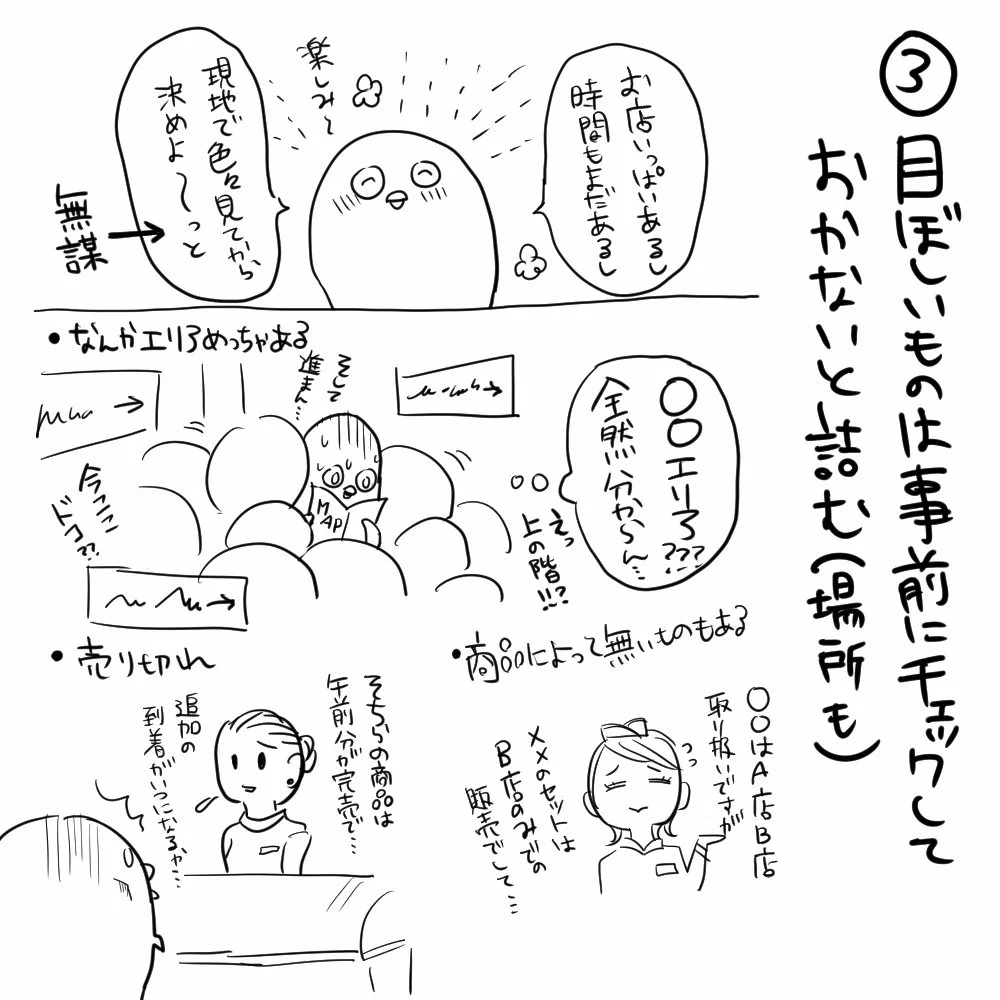 ③目ぼしいものは事前にチェックして
おかないと詰む(場所も)
お店いっぱいあるし
時間もまだあるし
楽しみ〜
現地で色々見てから
決めよ〜っと
無謀
・なんかエリアめっちゃある
○○エリア???
全然分からん…
えっ
上の階!!?
そして
進まん…
MAP
今ココ
ドコ??
・商品によって無いものもある
○○はA店B店
取り扱いですが
××のセットは
B店のみでの
販売でして…
・売り切れ
そちらの商品は
午前分が完売で…
追加の
到着がいつになるか…